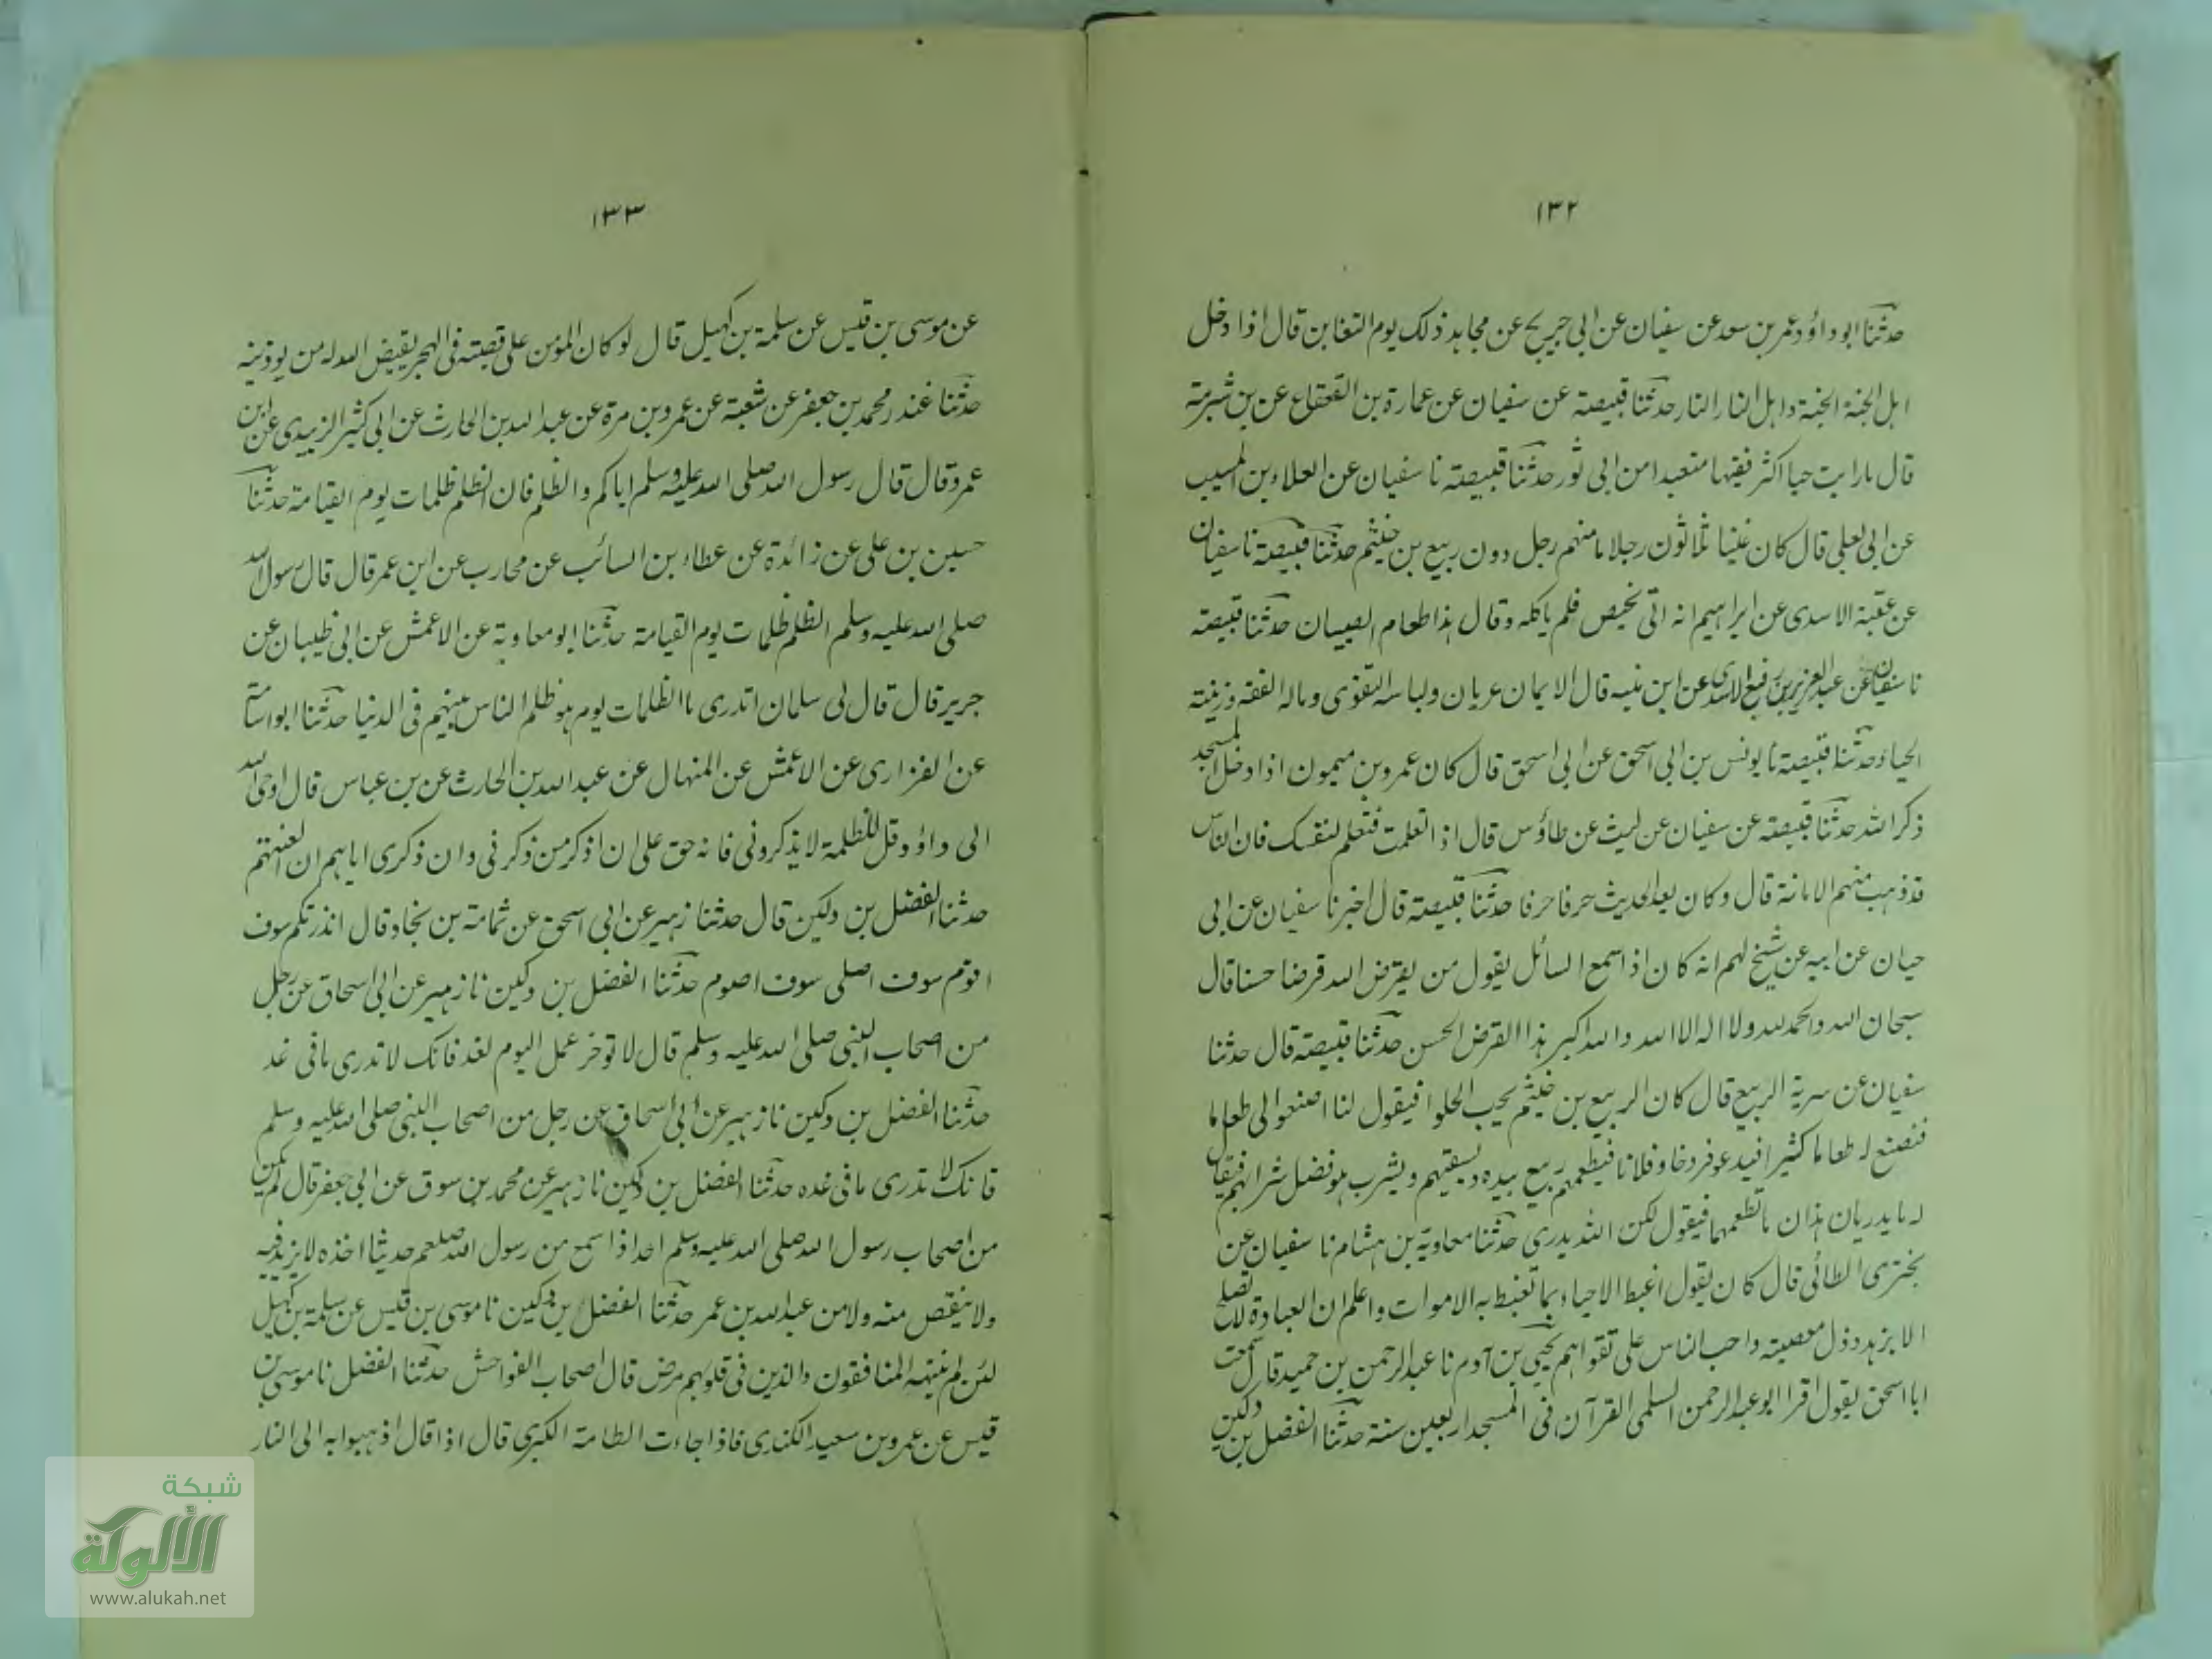 ١٣٢
حدثنا ابو داؤد عمر بن سعد عن سفيان عن ابى جريج عن مجاهد ذلك يوم التغابن قال اذا دخل
اهل الجنة الجنة واهل النار النار حدثنا قبيصة عن سفيان عن عمارة بن القعقاع عن بن شبرمة
قال مارايت حيا اكثر فقيها متعبدا من ابى ثور حدثنا قبيصة نا سفيان عن العلاء بن المسيب
عن ابى يعلى قال كان غنيا ثلاثون رجلا ما منهم رجل دون ربيع بن خثيم حدثنا قبيصة نا سفيان
عن عقبة الاسدى عن ابراهيم انه اتى بخيص فلم ياكله وقال هذا طعام الصبيان حدثنا قبيصة
نا سفيان عن عبد العزيز بن رفيع الاسدى عن ابن منبه قال الايمان عريان ولباسه التقوى وماله الفقه وزينته
الحياء حدثنا قبيصة نا يونس بن ابى اسحق عن ابى اسحق قال كان عمرو بن ميمون اذا دخل المسجد
ذكر الله حدثنا قبيصة عن سفيان عن ليث عن طاؤس قال اذ اتعلمت فتعلم لنفسك فان الناس
قد ذهب منهم الامانة قال وكان يعد الحديث حرفا حرفا حدثنا قبيصة قال اخبرنا سفيان عن ابى
حيان عن ابيه عن شيخ لهم انه كان اذ اسمع السائل يقول من يقرض الله قرضا حسنا قال
سبحان الله والحمد لله ولا اله الا الله والله اكبر هذا القرض الحسن حدثنا قبيصة قال حدثنا
سفيان عن سرية الربيع قال كان الربيع بن خيثم يحب الحلوا فيقول لنا اصنعوا لى طعاما
فنصنع له طعاما كثيرا فيدعو فروخا وفلانا فيطعمهم ربيع بيده ويسقيهم ويشرب هو فضل شرابهم فيقال
له مايدريان هذان ماتطعمهما فيقول لكن الله يدرى حدثنا معاوية بن هشام نا سفيان عن
بخترى الطائى قال كان يقول اغبط الاحياء بما تغبط به الاموات واعلم ان العبادة لا تصلح
الا بزهد وذل معصيته واحب الناس على تقواهم يحيى بن آدم نا عبد الرحمن بن حميد قال سمعت
ابا اسحق يقول اقرا ابو عبد الرحمن السلمى القرآن فى المسجد اربعين سنة حدثنا الفضل بن دكين
١٣٣
عن موسى بن قيس عن سلمة بن كهيل قال لو كان المؤمن على قصبته فى البحر يقيض الله له من يوذينه
حدثنا غندر محمد بن جعفر عن شعبة عن عمرو بن مرة عن عبد الله بن الحارث عن ابى كثير الزبيدى عن ابن
عمرو قال قال رسول الله صلى الله عليه وسلم اياكم والظلم فان الظلم ظلمات يوم القيامة حدثنا
حسين بن على عن زائدة عن عطاء بن السائب عن محارب عن ابن عمر قال قال رسول الله
صلى الله عليه وسلم الظلم ظلمات يوم القيامة حدثنا ابو معاوية عن الاعمش عن ابى ظبيان عن
جرير قال قال لى سلمان اتدرى ما الظلمات يوم هو ظلم الناس بينهم فى الدنيا حدثنا ابو اسامة
عن الفزارى عن الاعمش عن المنهال عن عبد الله بن الحارث عن بن عباس قال اوحى الله
الى داؤد قل للظلمة لا يذكرونى فانه حق على ان اذكر من ذكرنى وان ذكرى اياهم ان العنهم
حدثنا الفضل بن دكين قال حدثنا زهير عن ابى اسحق عن ثمامة بن بجاد قال انذرتكم سوف
اقوم سوف اصلى سوف اصوم حدثنا الفضل بن دكين نا زهير عن ابى اسحاق عن رجل
من اصحاب النبى صلى الله عليه وسلم قال لا توخر عمل اليوم لغد فانك لا تدرى ما فى غد
حدثنا الفضل بن دكين نا زهير عن ابى اسحاق عن رجل من اصحاب النبى صلى الله عليه وسلم
فانك لا تدرى ما فى غده حدثنا الفضل بن دكين نا زهير عن محمد بن سوق عن ابى جعفر قال لم يكن
من اصحاب رسول الله صلى الله عليه وسلم احد اذا سمع من رسول الله صلعم حديثا اخذه لا يزيد فيه
ولا ينقص منه ولا من عبد الله بن عمر حدثنا الفضل بن دكين نا موسى بن قيس عن سلمة بن كهيل
لئن لم ينته المنافقون والذين فى قلوبهم مرض قال اصحاب الفواحش حدثنا الفضل نا موسى بن
قيس عن عمرو بن سعيد الكندى فاذا جاءت الطامة الكبرى قال اذا قال اذهبوا به الى النار
شبكة
الألوكة
www.alukah.net